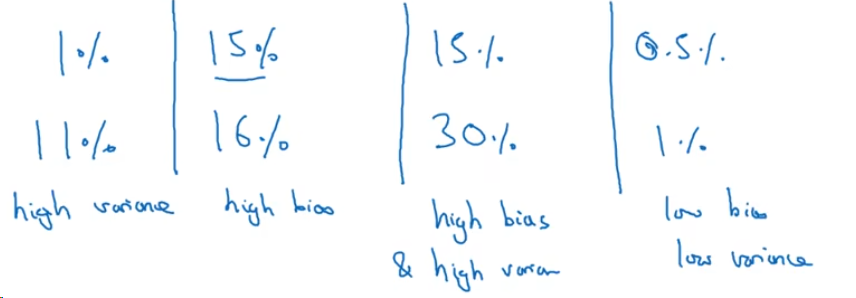 1% 15% 15% 0.5%
11% 16% 30% 1%
high variance high bias high bias low bias
& high varian low variance